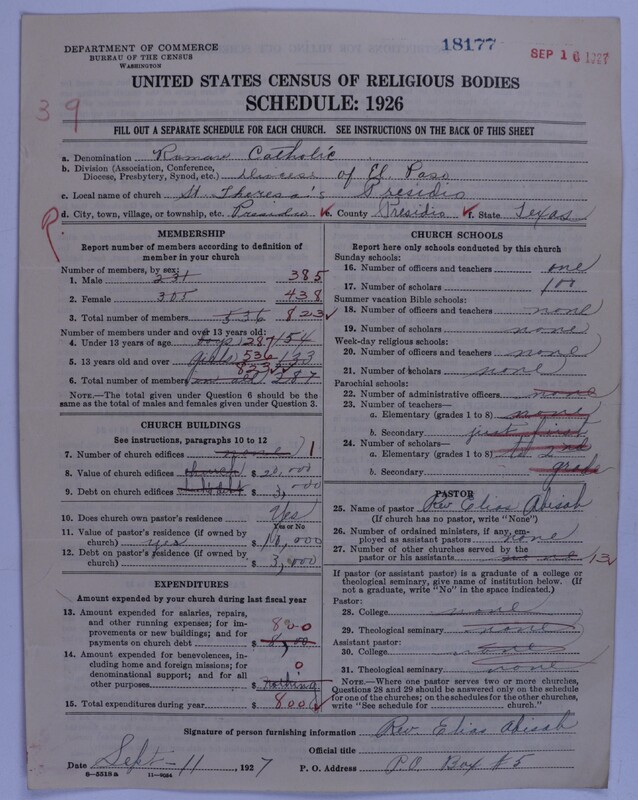 18177
SEP 16 1927
DEPARTMENT OF COMMERCE
BUREAU OF THE CENSUS
WASHINGTON
UNITED STATES CENSUS OF RELIGIOUS BODIES
SCHEDULE: 1926
39
FILL OUT A SEPARATE SCHEDULE FOR EACH CHURCH. SEE INSTRUCTIONS ON THE BACK OF THIS SHEET
a. Denomination Roman Catholic
b. Division (Association, Conference, Diocese, Presbytery, Synod, etc.) Diocese of El Paso
c. Local name of church St. Theresa's Presidio
R.
d. City, town, village, or township, etc. Presidio e. County Presidio f. State Texas
MEMBERSHIP
Report number of members according to definition of
member in your church
Number of members, by sex:
1. Male 231 385
2. Female 305 438
3. Total number of members 536 823
Number of members under and over 13 years old:
4. Under 13 years of age boys 287 154
5. 13 years old and over girls 536 133
823
6. Total number of members 287
NOTE.—The total given under Question 6 should be
same as the total of males and females given under Question 3.
CHURCH BUILDINGS
See instructions, paragraphs 10 to 12
7. Number of church edifices none 1
8. Value of church edifices church $ 20,000
9. Debt on church edifices $ 3,000
10. Does church own pastor's residence Yes
Yes or No
11. Value of pastor's residence (if owned by
church) yes $ 10,000
12. Debt on pastor's residence (if owned by
church) $ 3,000
EXPENDITURES
Amount expended by your church during last fiscal year
13. Amount expended for salaries, repairs,
and other running expenses; for im-
provements or new buildings; and for
payments on church debt 800
$ 8,00
14. Amount expended for benevolences, in-
cluding home and foreign missions; for
denominational support; and for all
other purposes 0
$ nothing
15. Total expenditures during year $ 800
CHURCH SCHOOLS
Report here only schools conducted by this church
Sunday schools:
16. Number of officers and teachers one
17. Number of scholars 100
Summer vacation Bible schools:
18. Number of officers and teachers none
19. Number of scholars none
Week-day religious schools:
20. Number of officers and teachers none
21. Number of scholars none
Parochial schools:
22. Number of administrative officers none
23. Number of teachers—
a. Elementary (grades 1 to 8) none
b. Secondary just first
24. Number of scholars—
a. Elementary (grades 1 to 8) 2nd
b. Secondary grade
PASTOR
25. Name of pastor Rev Elias Abisah
(If church has no pastor, write "None")
26. Number of ordained ministers, if any, em-
ployed as assistant pastors none
27. Number of other churches served by the
pastor or his assistants 13
If pastor (or assistant pastor) is a graduate of a college or
theological seminary, give name of institution below. (If
not a graduate, write "No" in the space indicated.)
Pastor:
28. College none
29. Theological seminary none
Assistant pastor:
30. College none
31. Theological seminary none
NOTE.—Where one pastor serves two or more churches,
Questions 28 and 29 should be answered only on the schedule
for one of the churches; on the schedules for the other churches,
write "See schedule for ______ church."
Signature of person furnishing information Rev. Elias Abisah
Official title
Date Sept-11, 1927 P. O. Address P.O. Box #5
8—5518 a 11—9034